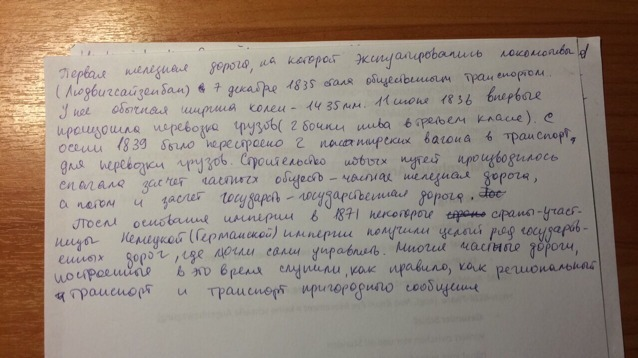 Первая железная дорога, на которой эксплуатировались локомотивы
(Людвигсайзенбан) с 7 декабря 1835 стала общественным транспортом.
У неё обычная ширина колеи - 1435 мм. 11 июня 1836 впервые
произошла перевозка грузов (2 бочки пива в третьем класе). С
осени 1839 было перестроено 2 пассажирских вагона в транспорт,
для перевозки грузов. Строительство новых путей производилось
сначала засчет частных обществ - частная железная дорога,
а потом и засчет государств - государственная дорога.
После основание империи в 1871 некоторые страны-участ-
ницы Немецкой (Германской) империи получили целый ряд государств-
енных дорог, где могли сами управлять. Многие частные дороги,
построенные в это время служили, как правило, как региональный
транспорт и транспорт пригородного сообщения